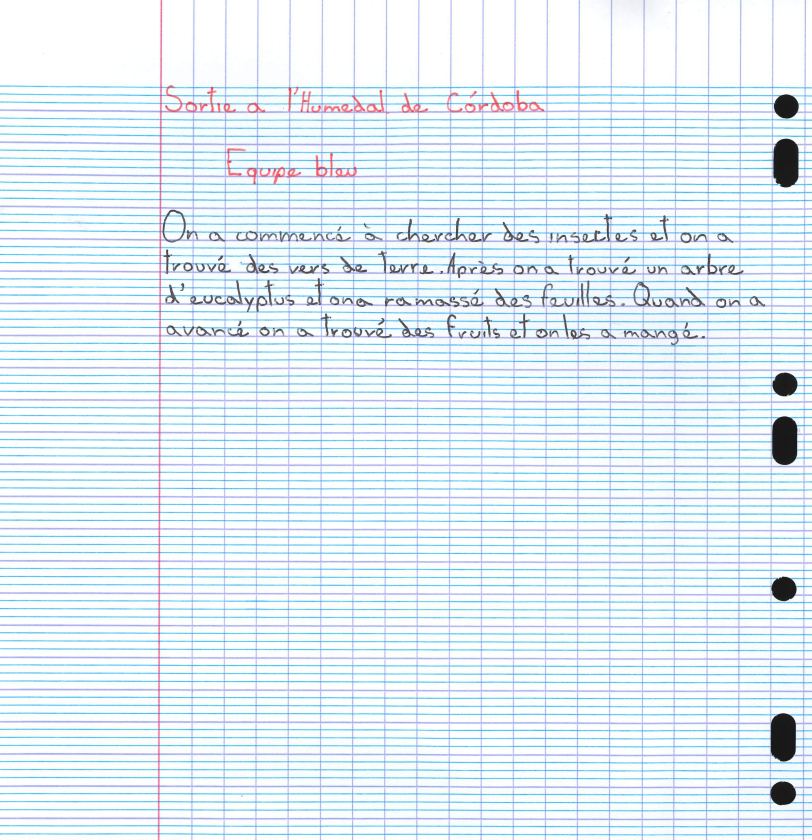 Sortie a l'Humedal de Córdoba
Equipe bleu
On a commencé à chercher des insectes et on a
trouvé des vers de terre. Après on a trouvé un arbre
d'eucalyptus et on a ramassé des feuilles. Quand on a
avancé on a trouvé des fruits et on les a mangé.